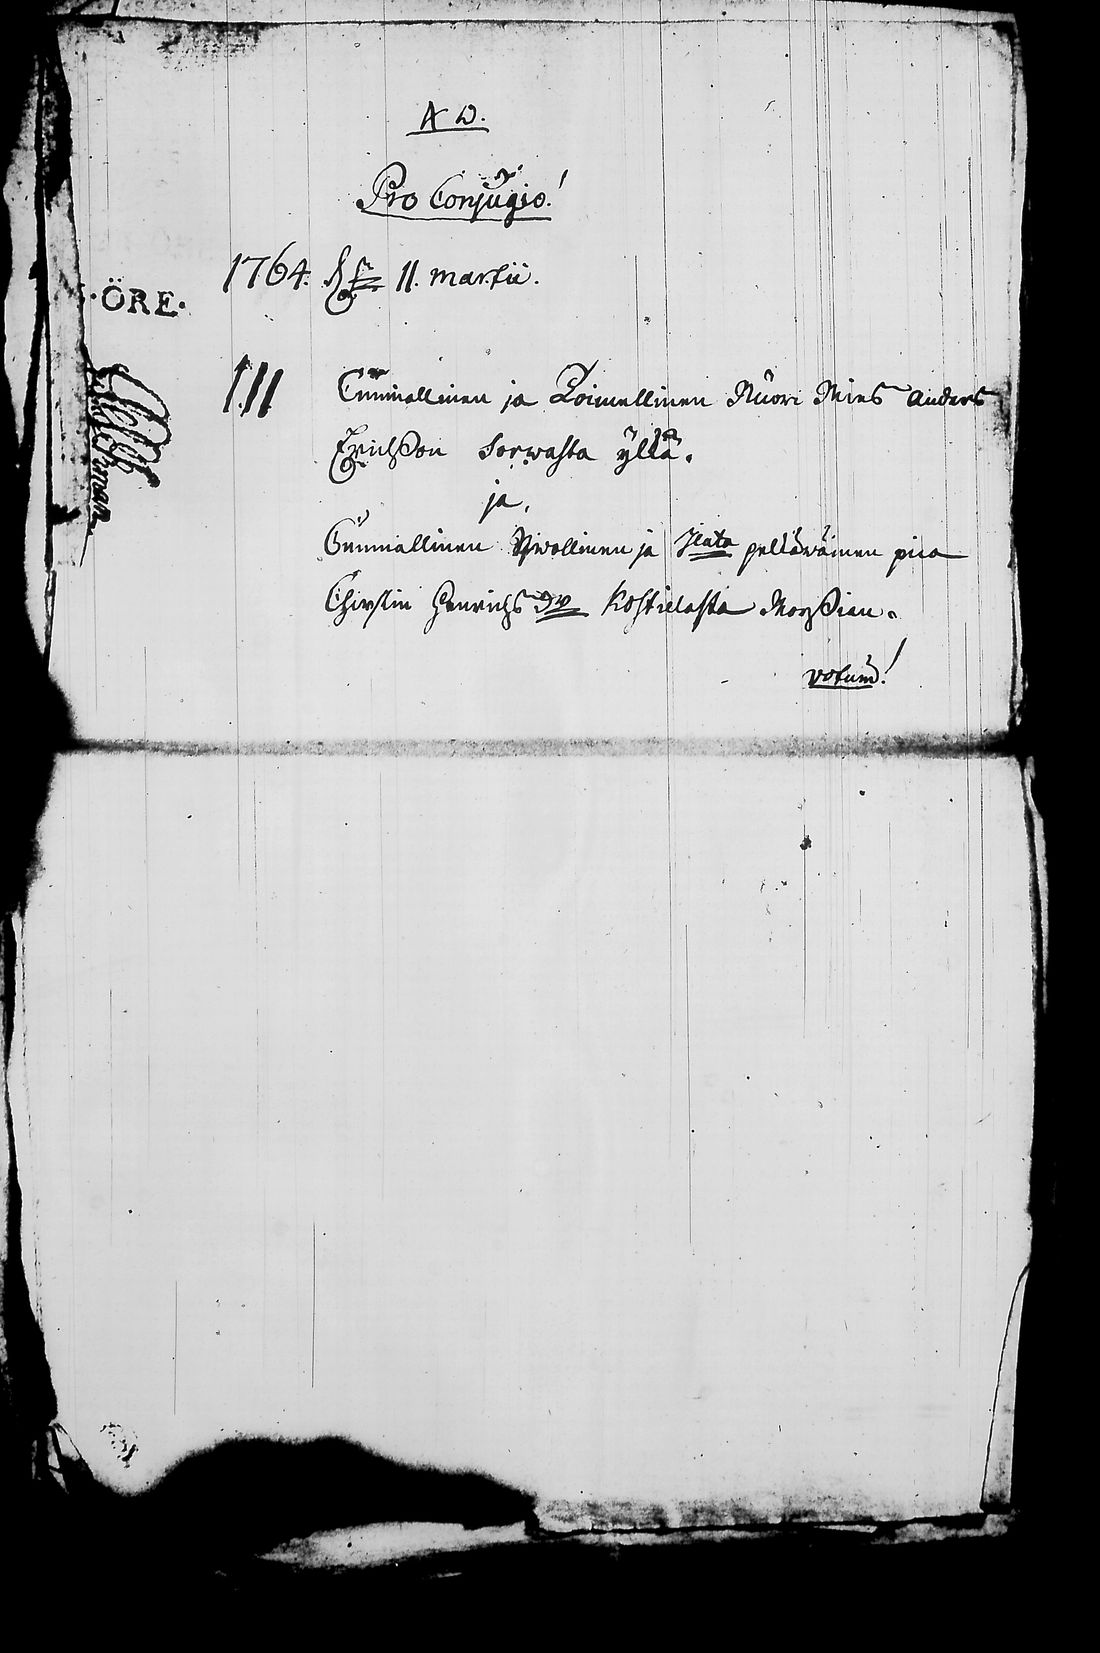 A D.
Pro Conjugio!
1764. d 11. Martii.
·ÖRE·
I.II Cunniallinen ja Toimellinen Nuori Mies Anders
Erichson Sorwasta ÿllä.
ja,
Cunniallinen Siwollinen ja pelläwäinen pica
Chirstin Henrichs Dr Kostilasta Morsian.
votum!